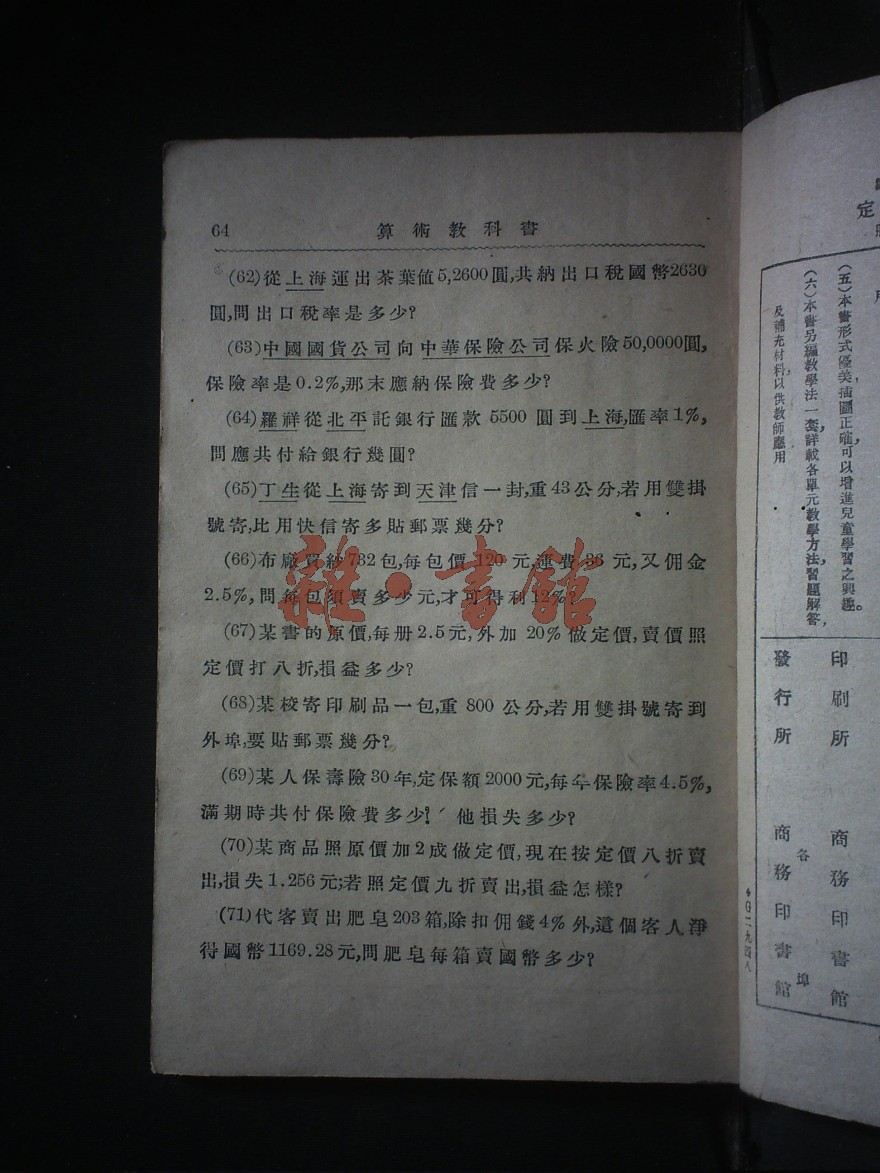 64 算術教科書
(62)從上海運出茶葉値5,2600圓,共納出口稅國幣2630
圓,問出口稅率是多少?
(63)中國國貨公司向中華保險公司保火險50,0000圓,
保險率是0.2%,那末應納保險費多少?
(64)羅祥從北平託銀行匯款 5500 圓到上海,匯率1%,
問應共付給銀行幾圓?
(65)丁生從上海寄到天津信一封,重43公分,若用雙掛
號寄,比用快信寄多貼郵票幾分?
(66)布廠買紗732包,每包價 120 元,運費 36 元,又佣金
2.5%,問每包須賣多少元,才可得利12%?
(67)某書的原價,每册2.5元,外加 20% 做定價,賣價照
定價打八折,損益多少?
(68)某校寄印刷品一包,重 800 公分,若用雙掛號寄到
外埠,要貼郵票幾分?
(69)某人保壽險30年,定保額2000元,每年保險率4.5%,
滿期時共付保險費多少? 他損失多少?
(70)某商品照原價加2成做定價,現在按定價八折賣
出,損失1.256元;若照定價九折賣出,損益怎樣?
(71)代客賣出肥皂203箱,除扣佣錢4%外,這個客人淨
得國幣1169.28元,問肥皂每箱賣國幣多少?
雜·書館
定
(五)本書形式優美,插圖正確,可以增進兒童學習之興趣。
(六)本書另編教學法一套,詳載各單元教學方法,習題解答,
及補充材料,以供教師應用
印刷所 商務印書館
發行所 商務印書館
各埠